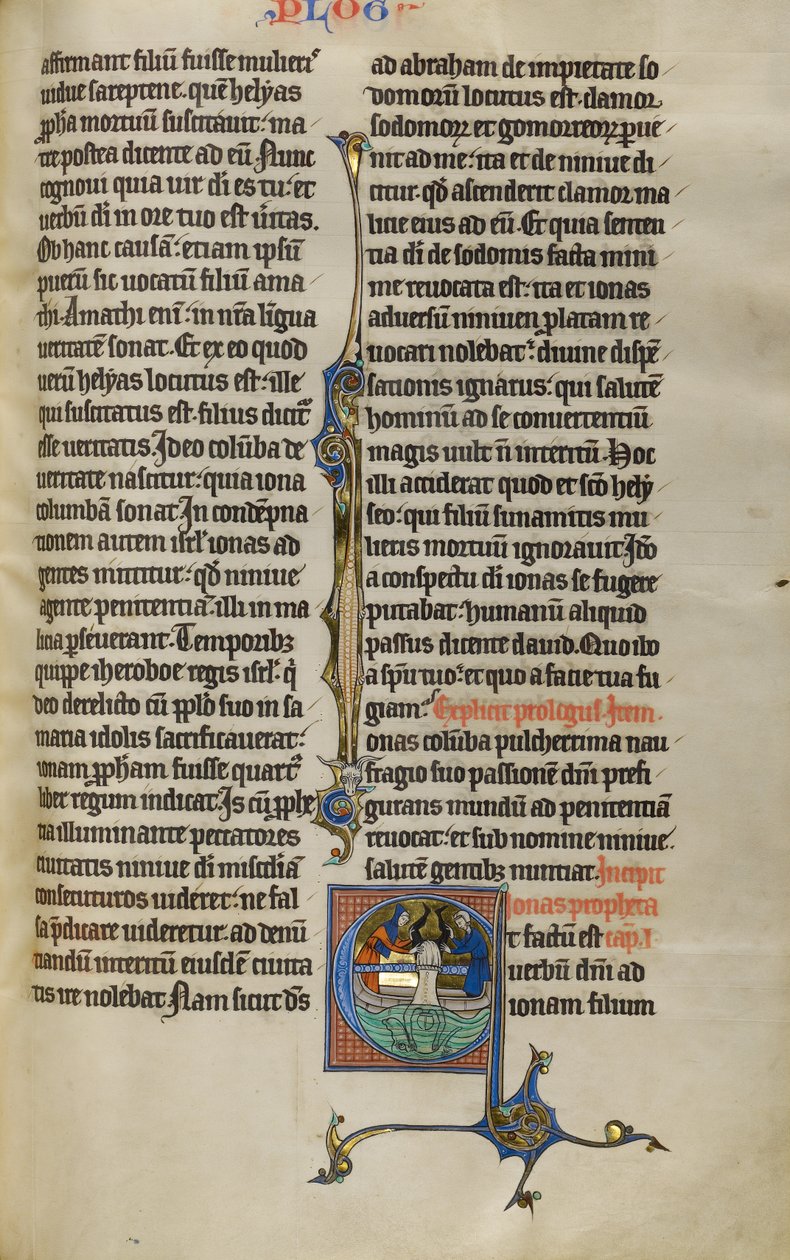 PLOG
affirmant filiū fuisse mulierꝭ
uidue sareptene. quē helyas
ꝓph̄a mortuū suscitauit: ma
tre postea dicente ad eū. Nunc
cognoui quia uir dī es tu: et
uerbū dī in ore tuo est ūitas.
Ob hanc causā: etiam ipsū
puerū sic uocatū filiū ama
thi. Amathi enī: in nr̄a līgua
ueritatē sonat. Et ex eo quod
uerū helyas locutus est: ille
qui suscitatus est. filius dicit᷑
esse ueritatis. Ideo colūba de
ueritate nascitur: quia iona
columbā sonat. In condēpna
tionem autem isrl̄ ionas ad
gentes mittitur: qd̄ niniue
agente penitentiā. illi in ma
licia ꝑseuerant. Temporibꝫ
quippe iheroboe regis isrl̄. q̄
deo derelicto cū ppl̄o suo in sa
maria idolis sacrificauerat:
ionam ꝓph̄am fuisse quart᷑
liber regum indicat. Is cū ꝓphe
tia illuminante peccatores
ciuitatis niniue dī misc̄diā
consecuturos uideret: ne fal
sa p̄dicare uideretur. ad denū
tiandū interitū eiusdē ciuita
tis ire nolebat. Nam sicut dn̄s
ad abraham de impietate so
domorū locutus est. clamor
sodomoꝝ et gomorreoꝝ ꝑue
nit ad me: ita et de niniue di
citur. qd̄ ascenderit clamor ma
licie eius ad eū. Et quia senten
tia dī de sodomis facta mini
me reuocata est: ita et ionas
aduersū niniuen ꝓlatam re
uocari nolebat: diuine dispē
sationis ignarus: qui salutē
hominū ad se conuertentiū
magis uult n̄ interitū. Hoc
illi acciderat quod et sc̄o hely
seo: qui filiū sunamitis mu
lieris mortuū ignorauit. Id̄o
a conspectu dī ionas se fugere
putabat: humanū aliquid
passus dicente dauid. Quo ibo
a sp̄u tuo: et quo a facie tua fu
giam. Explicit prologus. Item.
onas colūba pulcherrima nau
fragio suo passionē dn̄i prefi
gurans mundū ad penitentiā
reuocat: et sub nomine niniue.
salutē gentibꝫ nuntiat. Incipit
ionas propheta
t factū est cap̄. I
uerbū dn̄i ad
ionam filium